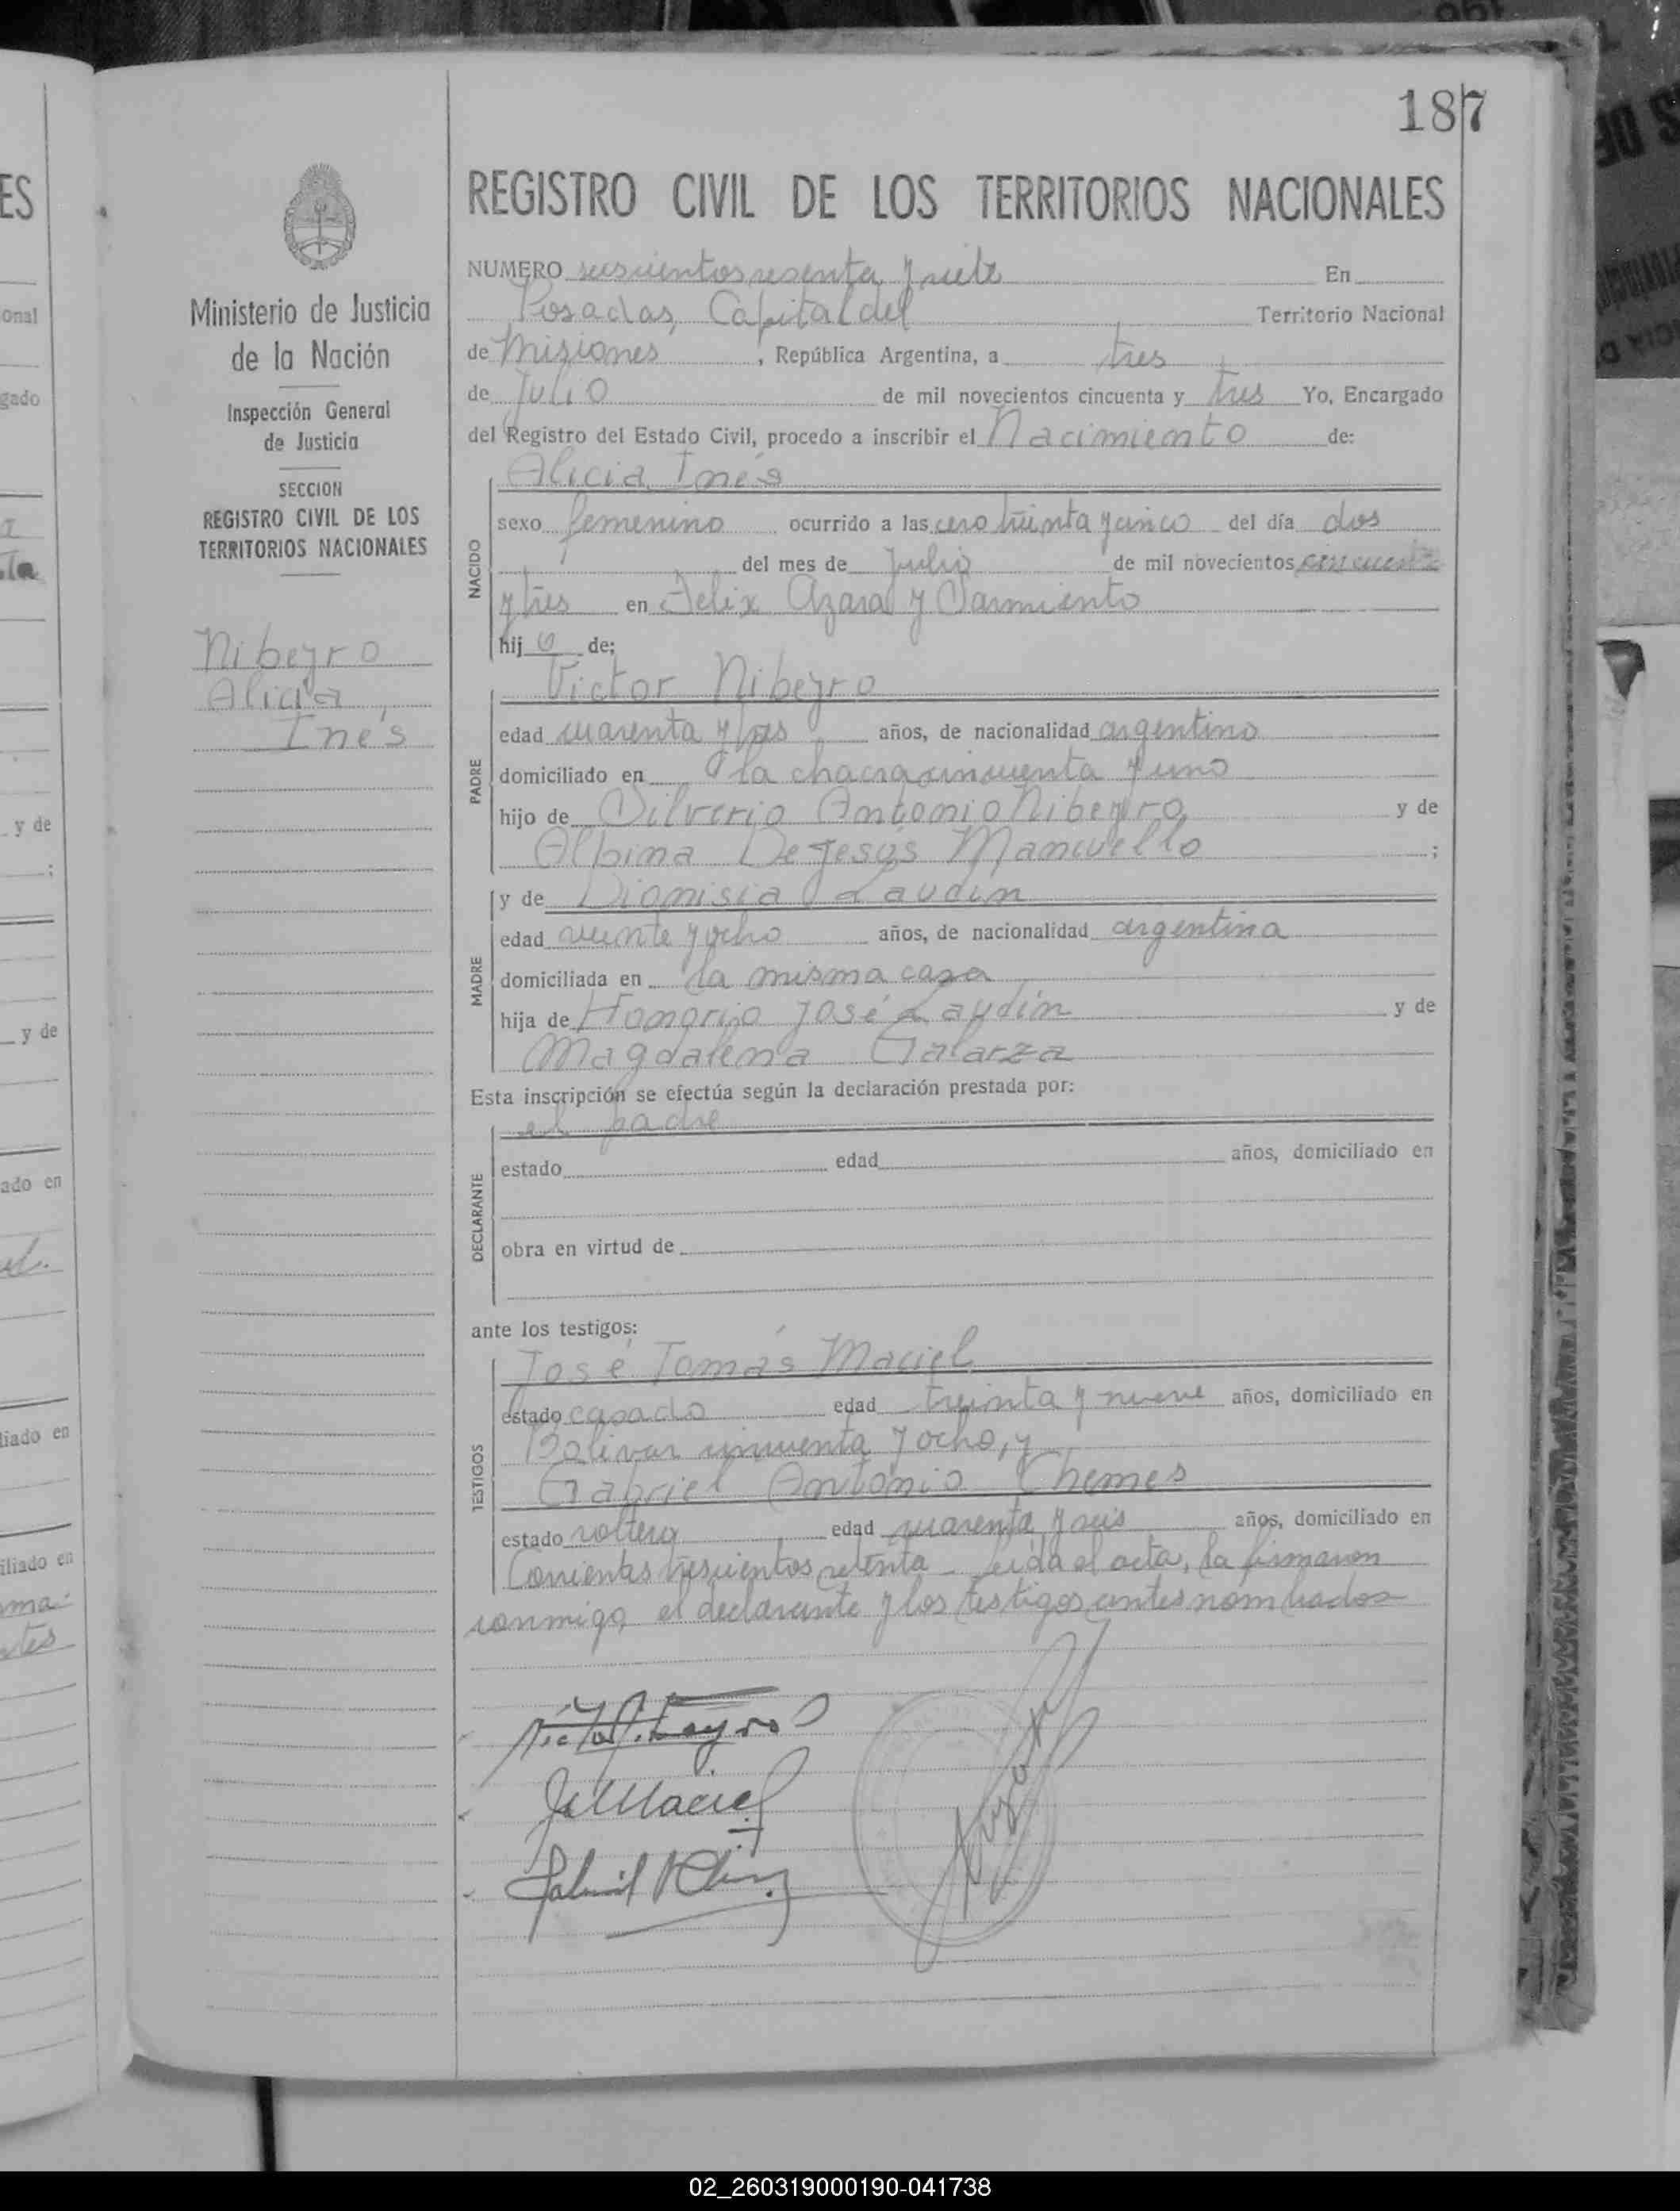 187
REGISTRO CIVIL DE LOS TERRITORIOS NACIONALES
Ministerio de Justicia
de la Nación
Inspección General
de Justicia
SECCION
REGISTRO CIVIL DE LOS
TERRITORIOS NACIONALES
Nibeyro
Alicia,
Inés
NUMERO seiscientos sesenta y siete En
Posadas, Capital del Territorio Nacional
de Misiones, República Argentina, a tres
de Julio de mil novecientos cincuenta y tres Yo, Encargado
del Registro del Estado Civil, procedo a inscribir el Nacimiento de:
Alicia Inés
NACIDO
sexo femenino ocurrido a las cero treinta y cinco del día dos
del mes de Julio de mil novecientos cincuenta
y tres en Felix Azara y Sarmiento
hij a de:
Victor Nibeyro
PADRE
edad cuarenta y años, de nacionalidad argentino
domiciliado en la chacra cincuenta y uno
hijo de Silverio Antonio Nibeyro y de
Albina De Jesús Mancuello ;
MADRE
y de Dionisia Laudin
edad veinte y ocho años, de nacionalidad argentina
domiciliada en la misma casa
hija de Honorio José Laudin y de
Magdalena Galarza
Esta inscripción se efectúa según la declaración prestada por:
el padre
DECLARANTE
estado edad años, domiciliado en
obra en virtud de
ante los testigos:
José Tomás Maciel
TESTIGOS
estado casado edad treinta y nueve años, domiciliado en
Bolivar cincuenta y ocho, y
Gabriel Antonio Chemes
estado soltero edad cuarenta y seis años, domiciliado en
Corrientes trescientos setenta - Leida el acta, la firmaron
conmigo, el declarante y los testigos antes nombrados
ES
onal
gado
y de
;
y de
ado en
liado en
iliado en
02_260319000190-041738